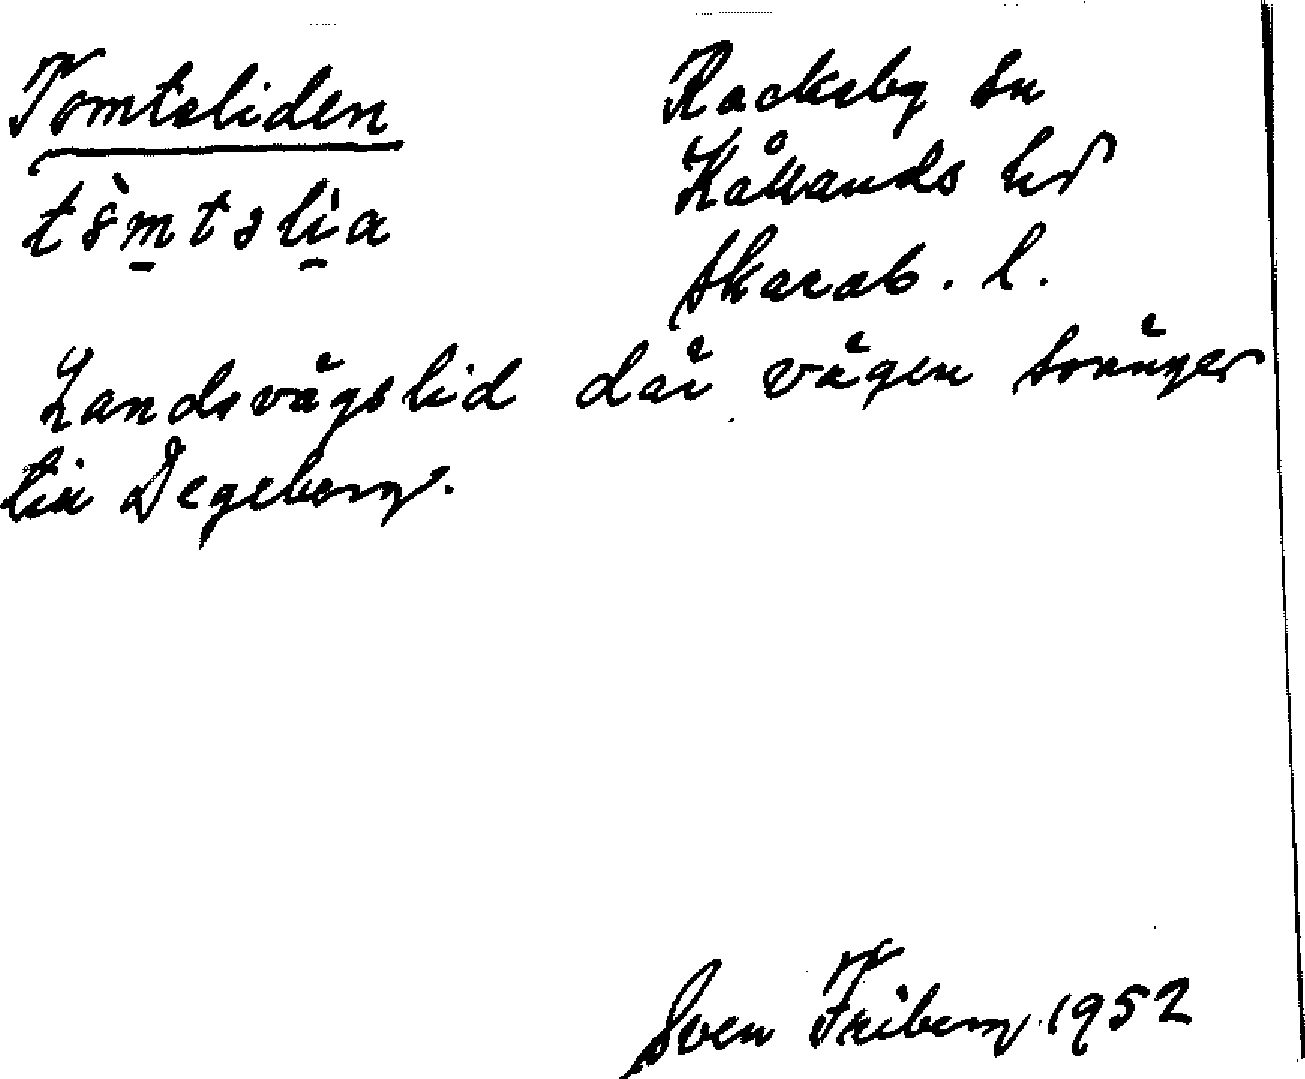 Tomteliden
tòmtəlìa
Rackeby sn
Kållands hd
Skarab. l.
Landsvägslid där vägen svänger
till Degeberg.
Sven Friberg 1952